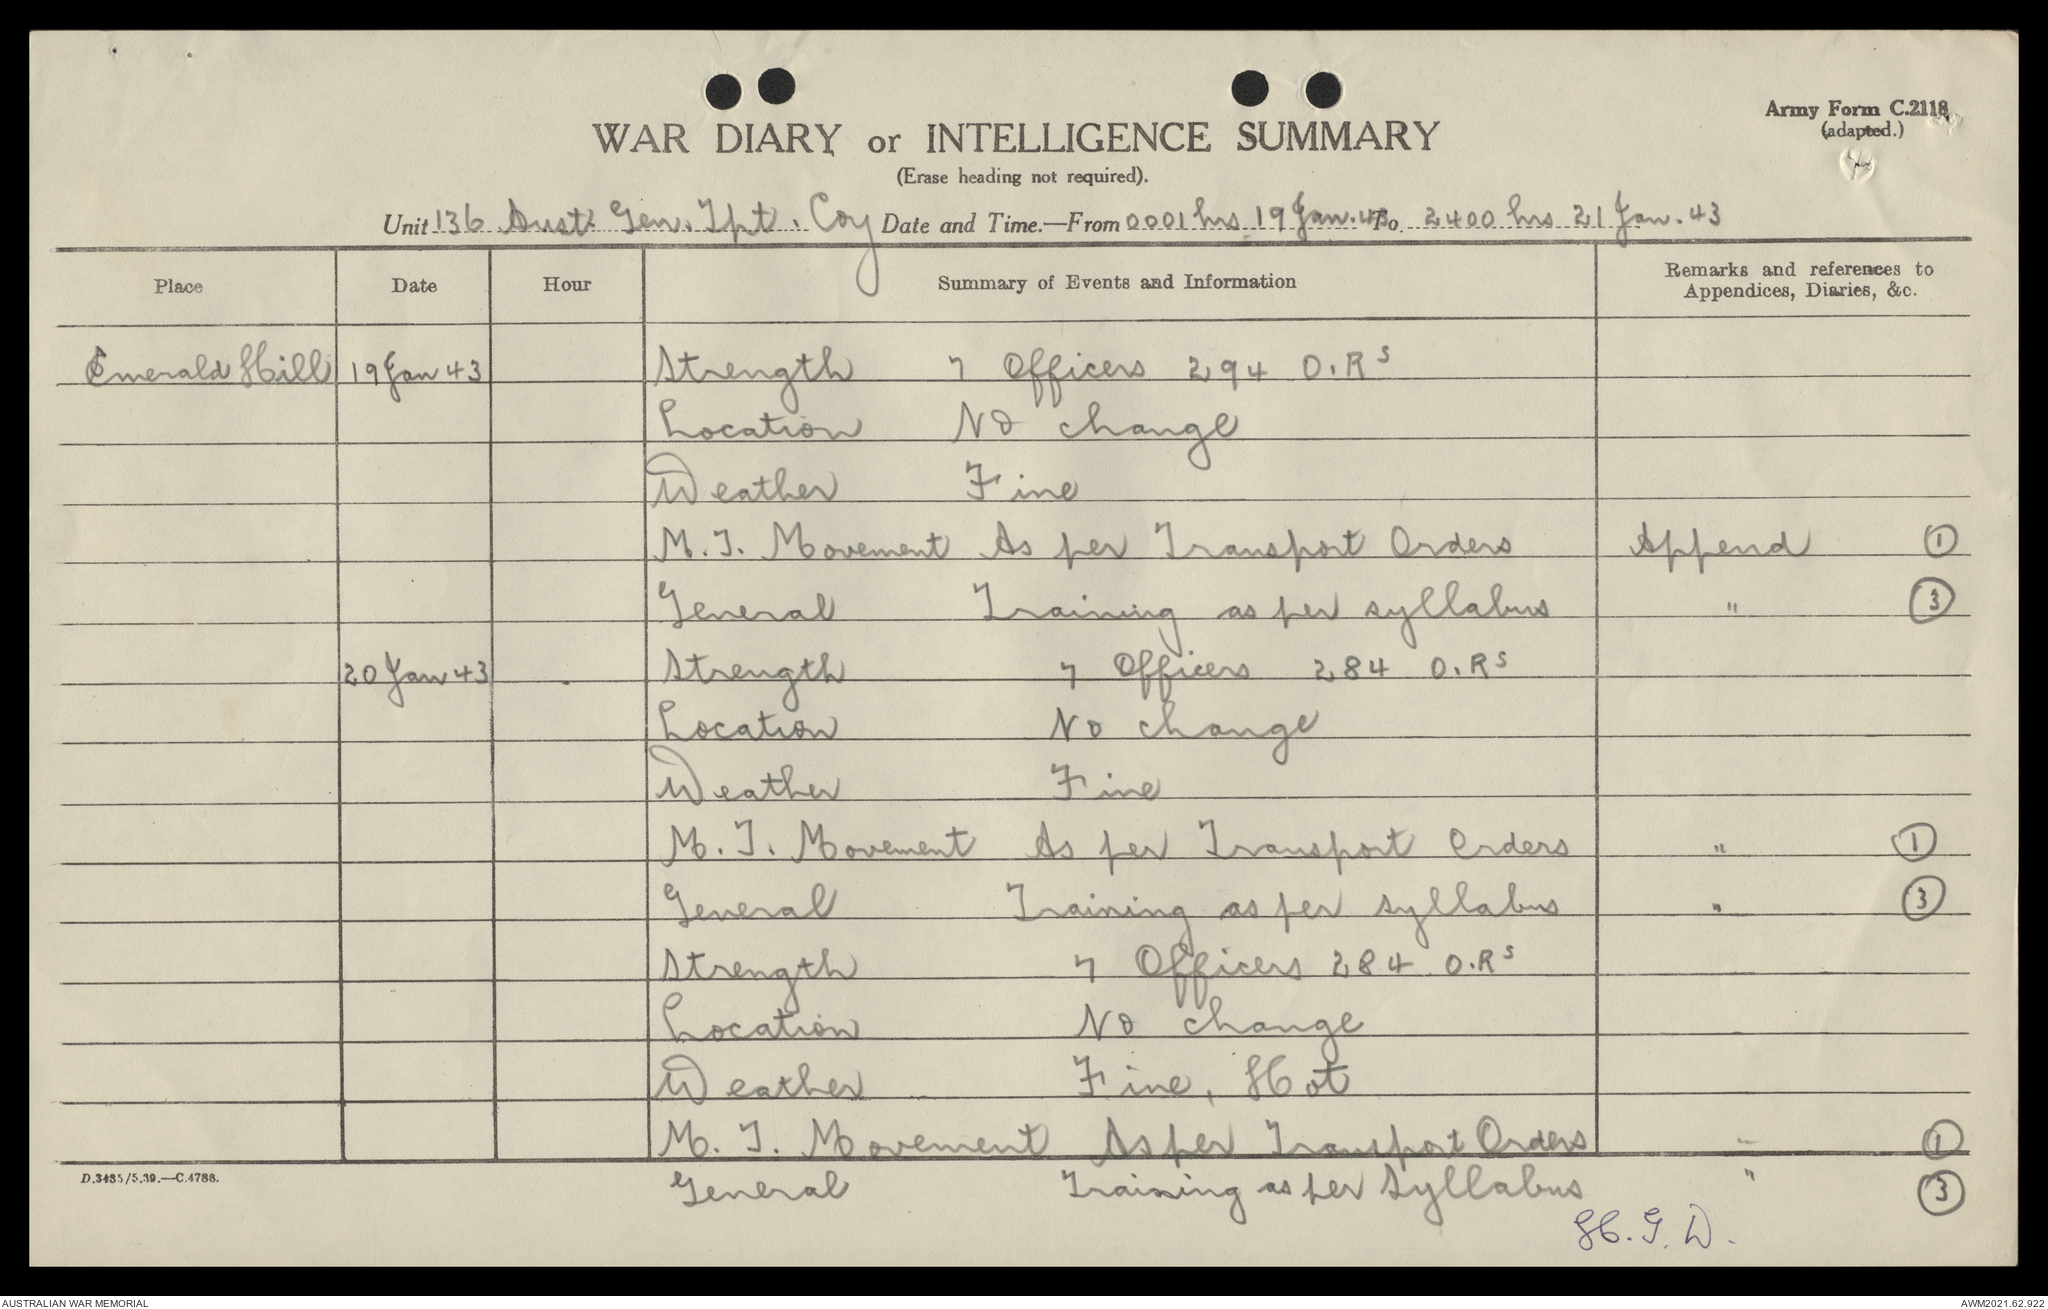 Army Form C.2118
(adapted.)
WAR DIARY or INTELLIGENCE SUMMARY
(Erase heading not required).
Unit 136 Aust. Gen. Tpt. Coy Date and Time.—From 0001 hrs 19 Jan. 43 To 2400 hrs 21 Jan. 43
Place Date Hour Summary of Events and Information Remarks and references to
Appendices, Diaries, &c.
Emerald Hill 19 Jan 43 Strength 7 Officers 294 O.Rs
Location No change
Weather Fine
M.T. Movement As per Transport Orders Append 1
General Training as per syllabus " 3
20 Jan 43 Strength 7 Officers 284 O.Rs
Location No change
Weather Fine
M.T. Movement As per Transport Orders " 1
General Training as per syllabus " 3
Strength 7 Officers 284 O.Rs
Location No change
Weather Fine, Hot
M.T. Movement As per Transport Orders " 1
D.3435/5.39.—C.4788.
General Training as per Syllabus " 3
H.G.D.
AUSTRALIAN WAR MEMORIAL AWM2021.62.922